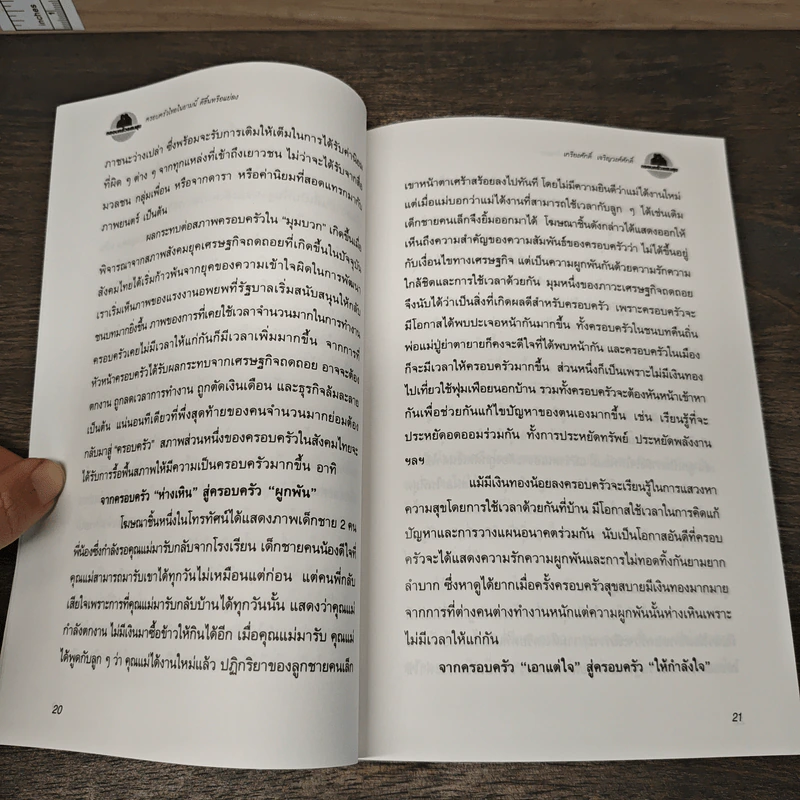 inches
ครอบครัวไทยในยามนี้ ดีขึ้นหรือแย่ลง
ภาชนะว่างเปล่า ซึ่งพร้อมจะรับการเติมให้เต็มในการได้รับค่านิยม
ที่ผิด ๆ ต่าง ๆ จากทุกแหล่งที่เข้าถึงเยาวชน ไม่ว่าจะได้รับจากสื่อ
มวลชน กลุ่มเพื่อน หรือจากดารา หรือค่านิยมที่สอดแทรกมากับ
ภาพยนตร์ เป็นต้น
ผลกระทบต่อสภาพครอบครัวใน “มุมบวก” เกิดขึ้นเมื่อ
พิจารณาจากสภาพสังคมยุคเศรษฐกิจถดถอยที่เกิดขึ้นในปัจจุบัน
สังคมไทยได้เริ่มก้าวพ้นจากยุคของความเข้าใจผิดในการพัฒนา
เราเริ่มเห็นภาพของแรงงานอพยพที่รัฐบาลเริ่มสนับสนุนให้กลับ
ชนบทมากยิ่งขึ้น ภาพของการที่เคยใช้เวลาจำนวนมากในการทำงาน
ครอบครัวเคยไม่มีเวลาให้แก่กันก็มีเวลาเพิ่มมากขึ้น จากการที่
หัวหน้าครอบครัวได้รับผลกระทบจากเศรษฐกิจถดถอย อาจจะต้อง
ตกงาน ถูกลดเวลาการทำงาน ถูกตัดเงินเดือน และธุรกิจล้มละลาย
เป็นต้น แน่นอนทีเดียวที่พึ่งสุดท้ายของคนจำนวนมากย่อมต้อง
กลับมาสู่ “ครอบครัว” สภาพส่วนหนึ่งของครอบครัวในสังคมไทยจะ
ได้รับการรื้อฟื้นสภาพให้มีความเป็นครอบครัวมากขึ้น อาทิ
จากครอบครัว “ห่างเหิน” สู่ครอบครัว “ผูกพัน”
โฆษณาชิ้นหนึ่งในโทรทัศน์ได้แสดงภาพเด็กชาย 2 คน
พี่น้องซึ่งกำลังรอคุณแม่มารับกลับจากโรงเรียน เด็กชายคนน้องดีใจที่
คุณแม่สามารถมารับเขาได้ทุกวันไม่เหมือนแต่ก่อน แต่คนพี่กลับ
เสียใจเพราะการที่คุณแม่มารับกลับบ้านได้ทุกวันนั้น แสดงว่าคุณแม่
กำลังตกงาน ไม่มีเงินมาซื้อข้าวให้กินได้อีก เมื่อคุณแม่มารับ คุณแม่
ได้พูดกับลูก ๆ ว่า คุณแม่ได้งานใหม่แล้ว ปฏิกริยาของลูกชายคนเล็ก
20
เกรียงศักดิ์ เจริญวงศ์ศักดิ์
เขาหน้าตาเศร้าสร้อยลงไปทันที โดยไม่มีความยินดีว่าแม่ได้งานใหม่
แต่เมื่อแม่บอกว่าแม่ได้งานที่สามารถใช้เวลากับลูก ๆ ได้เช่นเดิม
เด็กชายคนเล็กจึงยิ้มออกมาได้ โฆษณาชิ้นดังกล่าวได้แสดงออกให้
เห็นถึงความสำคัญของความสัมพันธ์ของครอบครัวว่า ไม่ได้ขึ้นอยู่
กับเงื่อนไขทางเศรษฐกิจ แต่เป็นความผูกพันกันด้วยความรักความ
ใกล้ชิดและการใช้เวลาด้วยกัน มุมหนึ่งของภาวะเศรษฐกิจถดถอย
จึงนับได้ว่าเป็นสิ่งที่เกิดผลดีสำหรับครอบครัว เพราะครอบครัวจะ
มีโอกาสได้พบปะเจอหน้ากันมากขึ้น ทั้งครอบครัวในชนบทคืนถิ่น
พ่อแม่ปู่ย่าตายายก็คงจะดีใจที่ได้พบหน้ากัน และครอบครัวในเมือง
ก็จะมีเวลาให้ครอบครัวมากขึ้น ส่วนหนึ่งก็เป็นเพราะไม่มีเงินทอง
ไปเที่ยวใช้ฟุ่มเฟือยนอกบ้าน รวมทั้งครอบครัวจะต้องหันหน้าเข้าหา
กันเพื่อช่วยกันแก้ไขปัญหาของตนเองมากขึ้น เช่น เรียนรู้ที่จะ
ประหยัดอดออมร่วมกัน ทั้งการประหยัดทรัพย์ ประหยัดพลังงาน
ฯลฯ
แม้มีเงินทองน้อยลงครอบครัวจะเรียนรู้ในการแสวงหา
ความสุขโดยการใช้เวลาด้วยกันที่บ้าน มีโอกาสใช้เวลาในการคิดแก้
ปัญหาและการวางแผนอนาคตร่วมกัน นับเป็นโอกาสอันดีที่ครอบ
ครัวจะได้แสดงความรักความผูกพันและการไม่ทอดทิ้งกันยามยาก
ลำบาก ซึ่งหาดูได้ยากเมื่อครั้งครอบครัวสุขสบายมีเงินทองมากมาย
จากการที่ต่างคนต่างทำงานหนักแต่ความผูกพันนั้นห่างเหินเพราะ
ไม่มีเวลาให้แก่กัน
จากครอบครัว “เอาแต่ใจ” สู่ครอบครัว “ให้กำลังใจ”
21